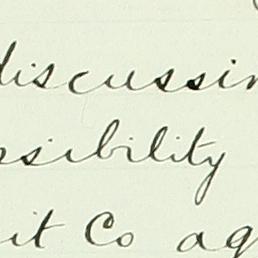 discussin
ssibility
it Co ag